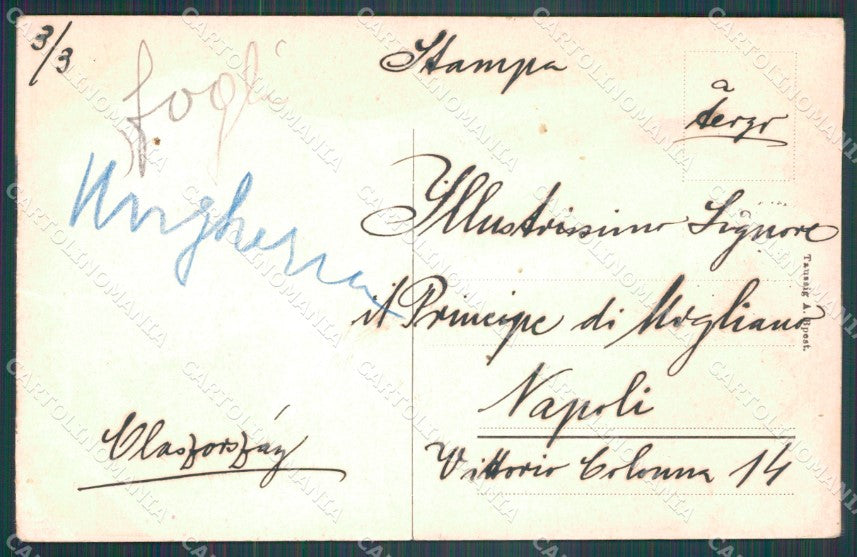 3/3
Stampa
a
tergo
Ungheria
Illustrissimo Signore
il Principe di Migliano
Napoli
Vittorio Colonna 14
Olaszország
Taussig A. Bpest.
CARTOLINOMANIA